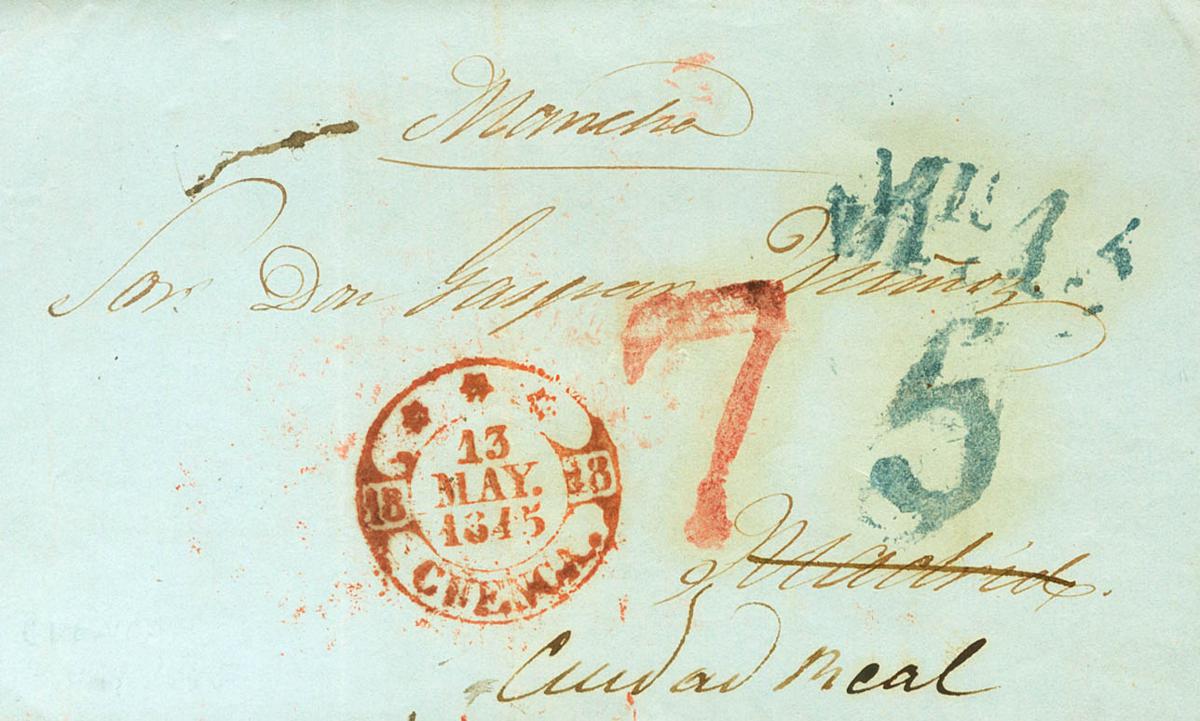 Mancha
Sor. Don Gaspar Muñoz
7
5
13
MAY.
1845
18
18
CUENCA.
Madrid.
Ciudad Real